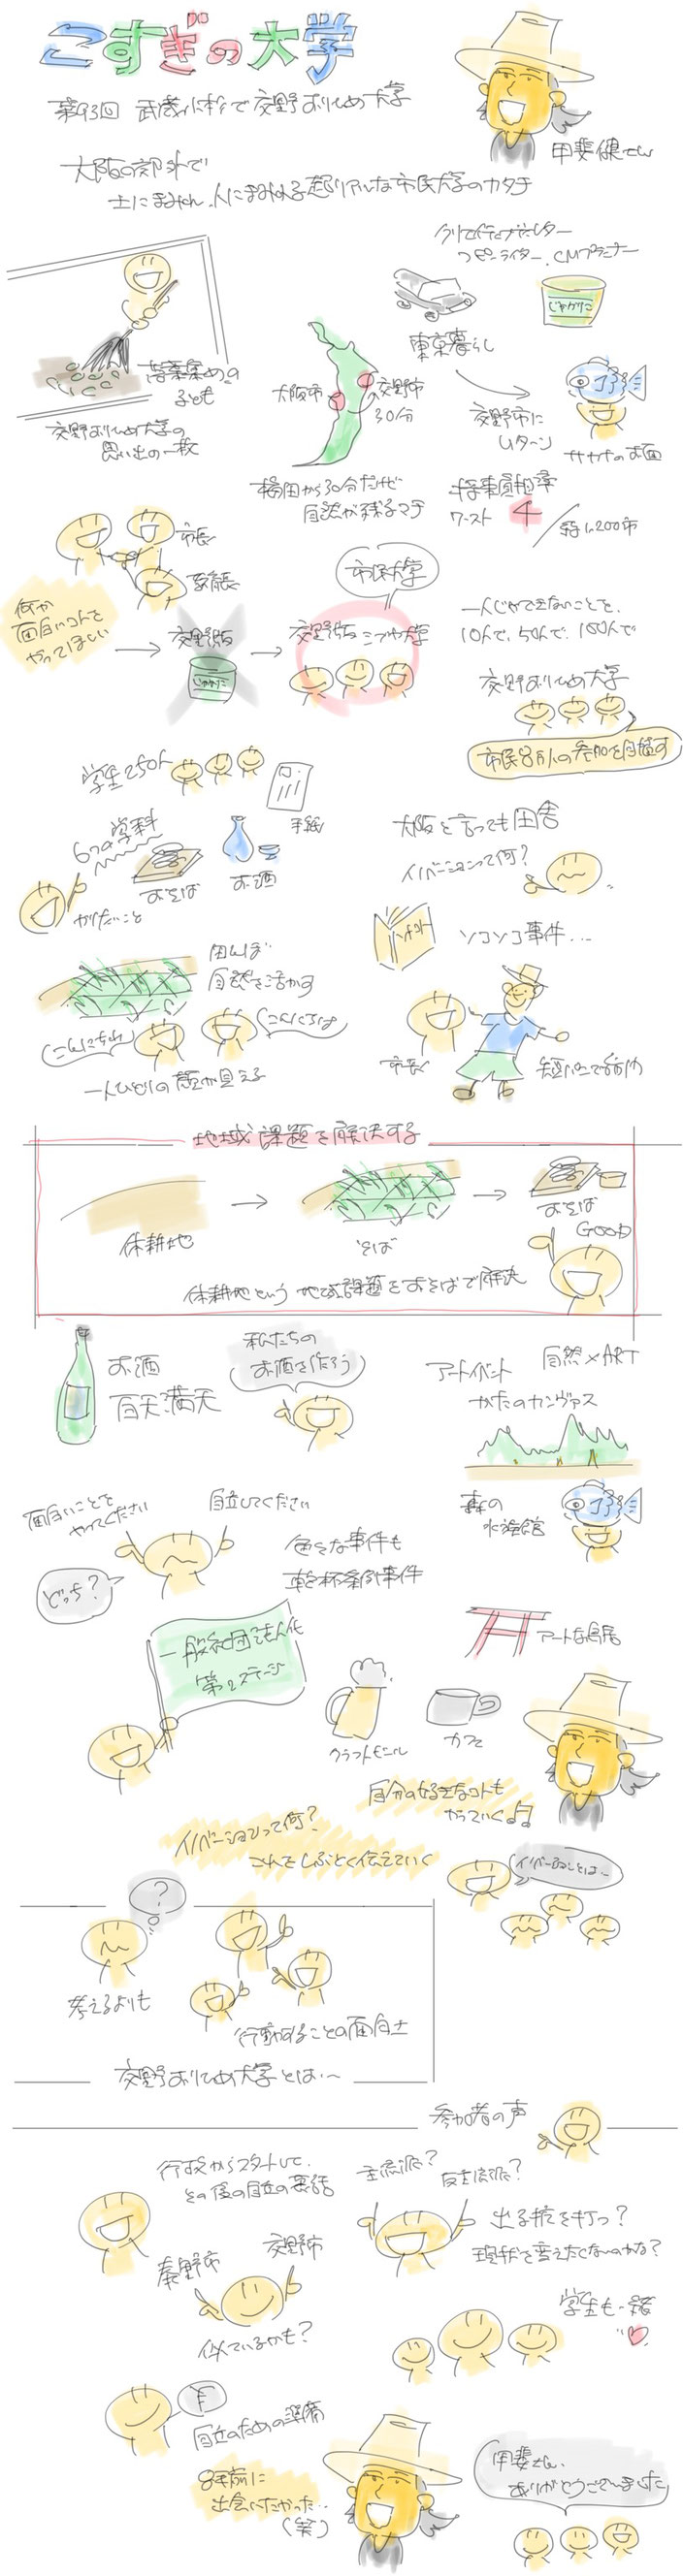 こすぎの大学
第93回 武蔵小杉で交野おりひめ大学
甲斐健さん
大阪の郊外で
土にまみれ、人にまみれる超リアルな市民大学のカタチ
クリエイティブディレクター
コピーライター、CMプランナー
じゃがりこ
東京暮らし
落葉集めの
子ども
交野おりひめ大学の
思い出の一枚
大阪市
交野市
30分
交野市に
Uターン
サカナのお面
梅田から30分だけど
自然が残るマチ
ワースト 4
市長
何か
面白いコトを
やってほしい
交野版
じゃがりこ
市民大学
交野版 シブヤ大学
一人じゃできないことを、
10人で、50人で、100人で
交野おりひめ大学
市民8万人の参加を目指す
学生250人
手紙
6つの学科
おそば
お酒
やりたいこと
大阪と言っても田舎
イノベーションって何?
ソコソコ事件...
田んぼ
自然を活かす
こんにちわ
こんにちは
一人ひとりの顔が見える
市長
短パンで
地域課題を解決する
休耕地
そば
おそば
GOOD
休耕地という地域課題をおそばで解決
お酒
百天満天
私たちの
お酒を作ろう
アートイベント
自然×ART
かたのカンヴァス
森の
水族館
面白いことを
やってください
自立してください
どっち?
色々な事件も
乾杯条例事件
一般社団法人化
第2ステージ
アートな鳥居
クラフトビール
カフェ
自分の好きなコトも
やっていく♫
イノベーションって何?
これをしぶとく伝えていく
イノベーションとは..
?
考えるよりも
行動することの面白さ
交野おりひめ大学とは..〜
参加者の声
行政からスタートして、
その後の自立の要請
主流派?
反主流派?
出る杭を打つ?
現状を変えたくないのかな?
秦野市
交野市
似ているかも?
学生も一緒
自立のための準備
8年前に
出会いたかった..
(笑)
甲斐さん、
ありがとうございました